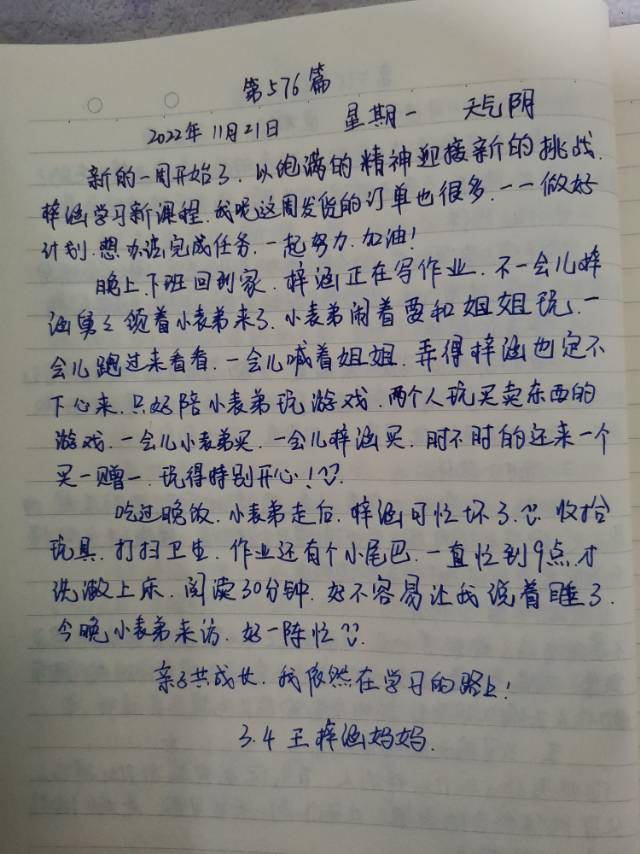 第576篇
2022年11月21日 星期一 天气阴
新的一周开始了.以饱满的精神迎接新的挑战.
梓涵学习新课程.我呢这周发货的订单也很多.一一做好
计划.想办法完成任务.一起努力.加油!
晚上下班回到家.梓涵正在写作业.不一会儿梓
涵舅々领着小表弟来了.小表弟闹着要和姐姐玩.一
会儿跑过来看看.一会儿喊着姐姐.弄得梓涵也定不
下心来.只好陪小表弟玩游戏.两个人玩买卖东西的
游戏.一会儿小表弟买.一会儿梓涵买.时不时的还来一个
买一赠一.玩得特别开心!
吃过晚饭.小表弟走后.梓涵可忙坏了.收拾
玩具.打扫卫生.作业还有个小尾巴.一直忙到9点才
洗漱上床.阅读30分钟.好不容易让我说着睡了.
今晚小表弟来访.好一阵忙.
亲子共成长.我依然在学习的路上!
3.4 王梓涵妈妈.